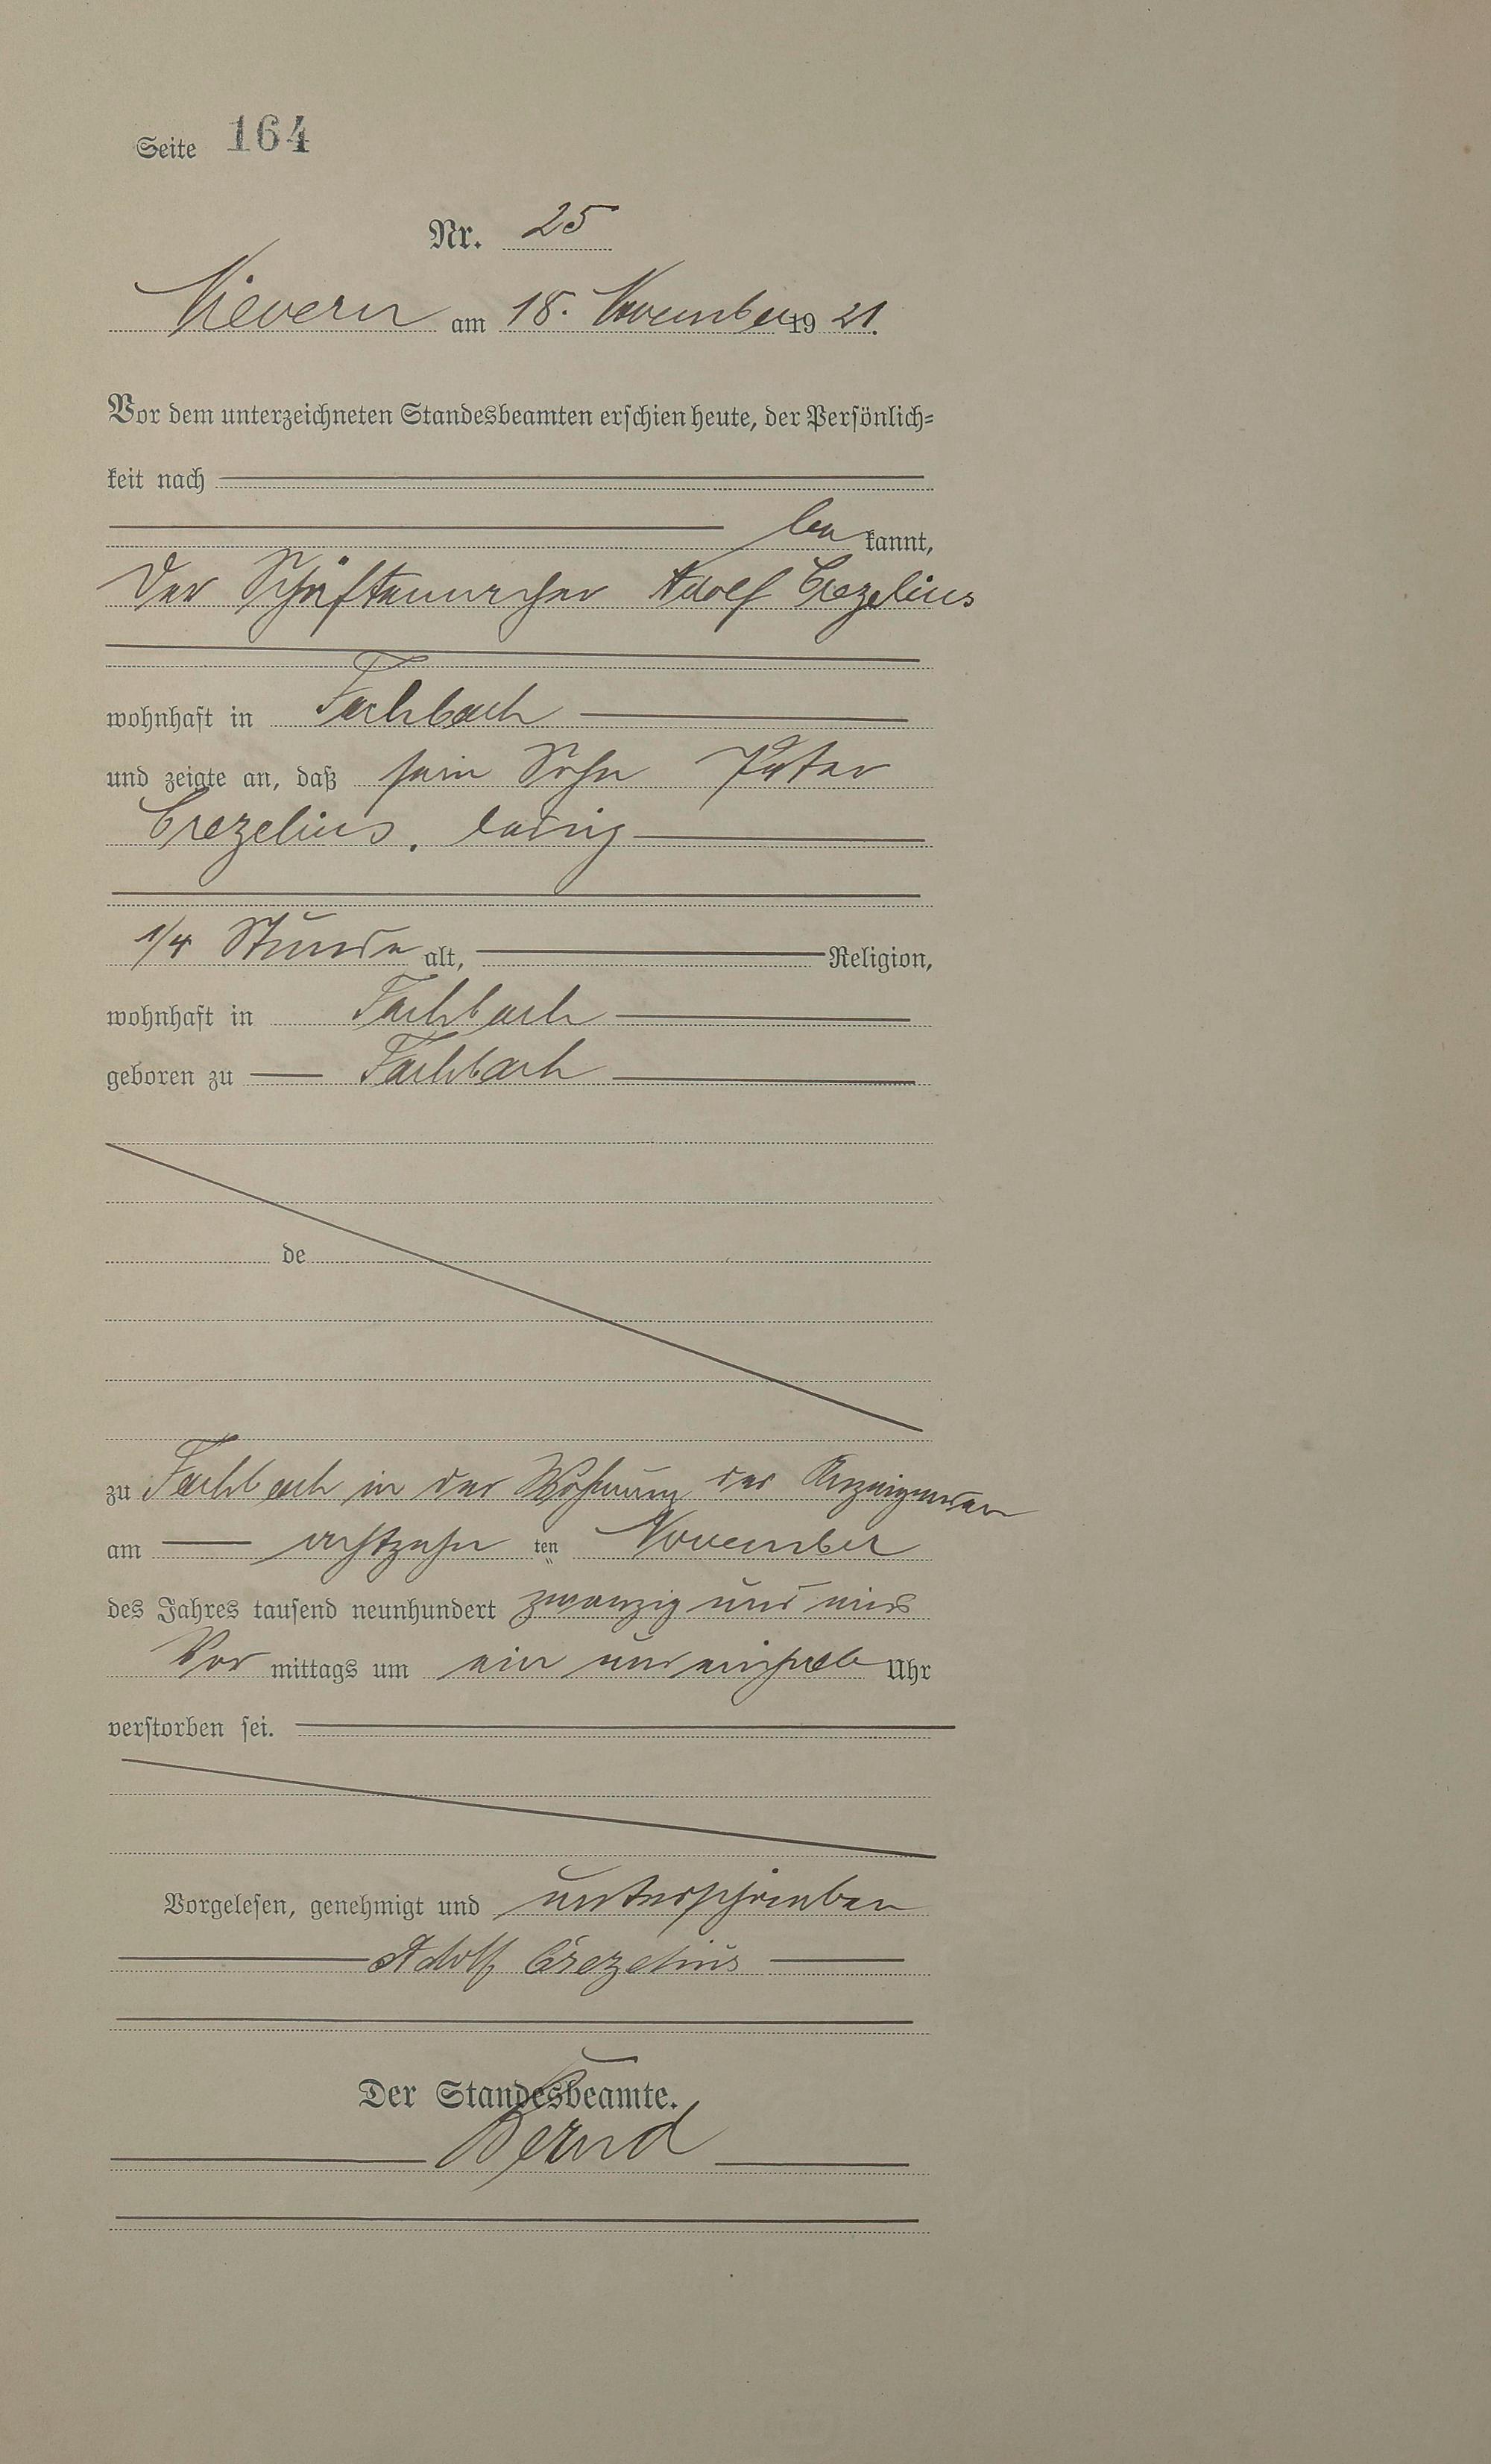 Seite 164
Nr. 25
Nievern am 18. November 19 21.
Vor dem unterzeichneten Standesbeamten erschien heute, der Persönlich-
keit nach
be kannt,
der Schäftemacher Adolf Crezelius
wohnhaft in Fachbach
und zeigte an, daß sein Sohn Peter
Crezelius, ledig
1/4 Stunde alt, Religion,
wohnhaft in Fachbach
geboren zu Fachbach
de
zu Fachbach in der Wohnung des Anzeigenden
am achtzehn ten November
des Jahres tausend neunhundert zwanzig und eins
Vor mittags um ein und einhalb Uhr
verstorben sei.
Vorgelesen, genehmigt und unterschrieben
Adolf Crezelius
Der Standesbeamte.
Bernd